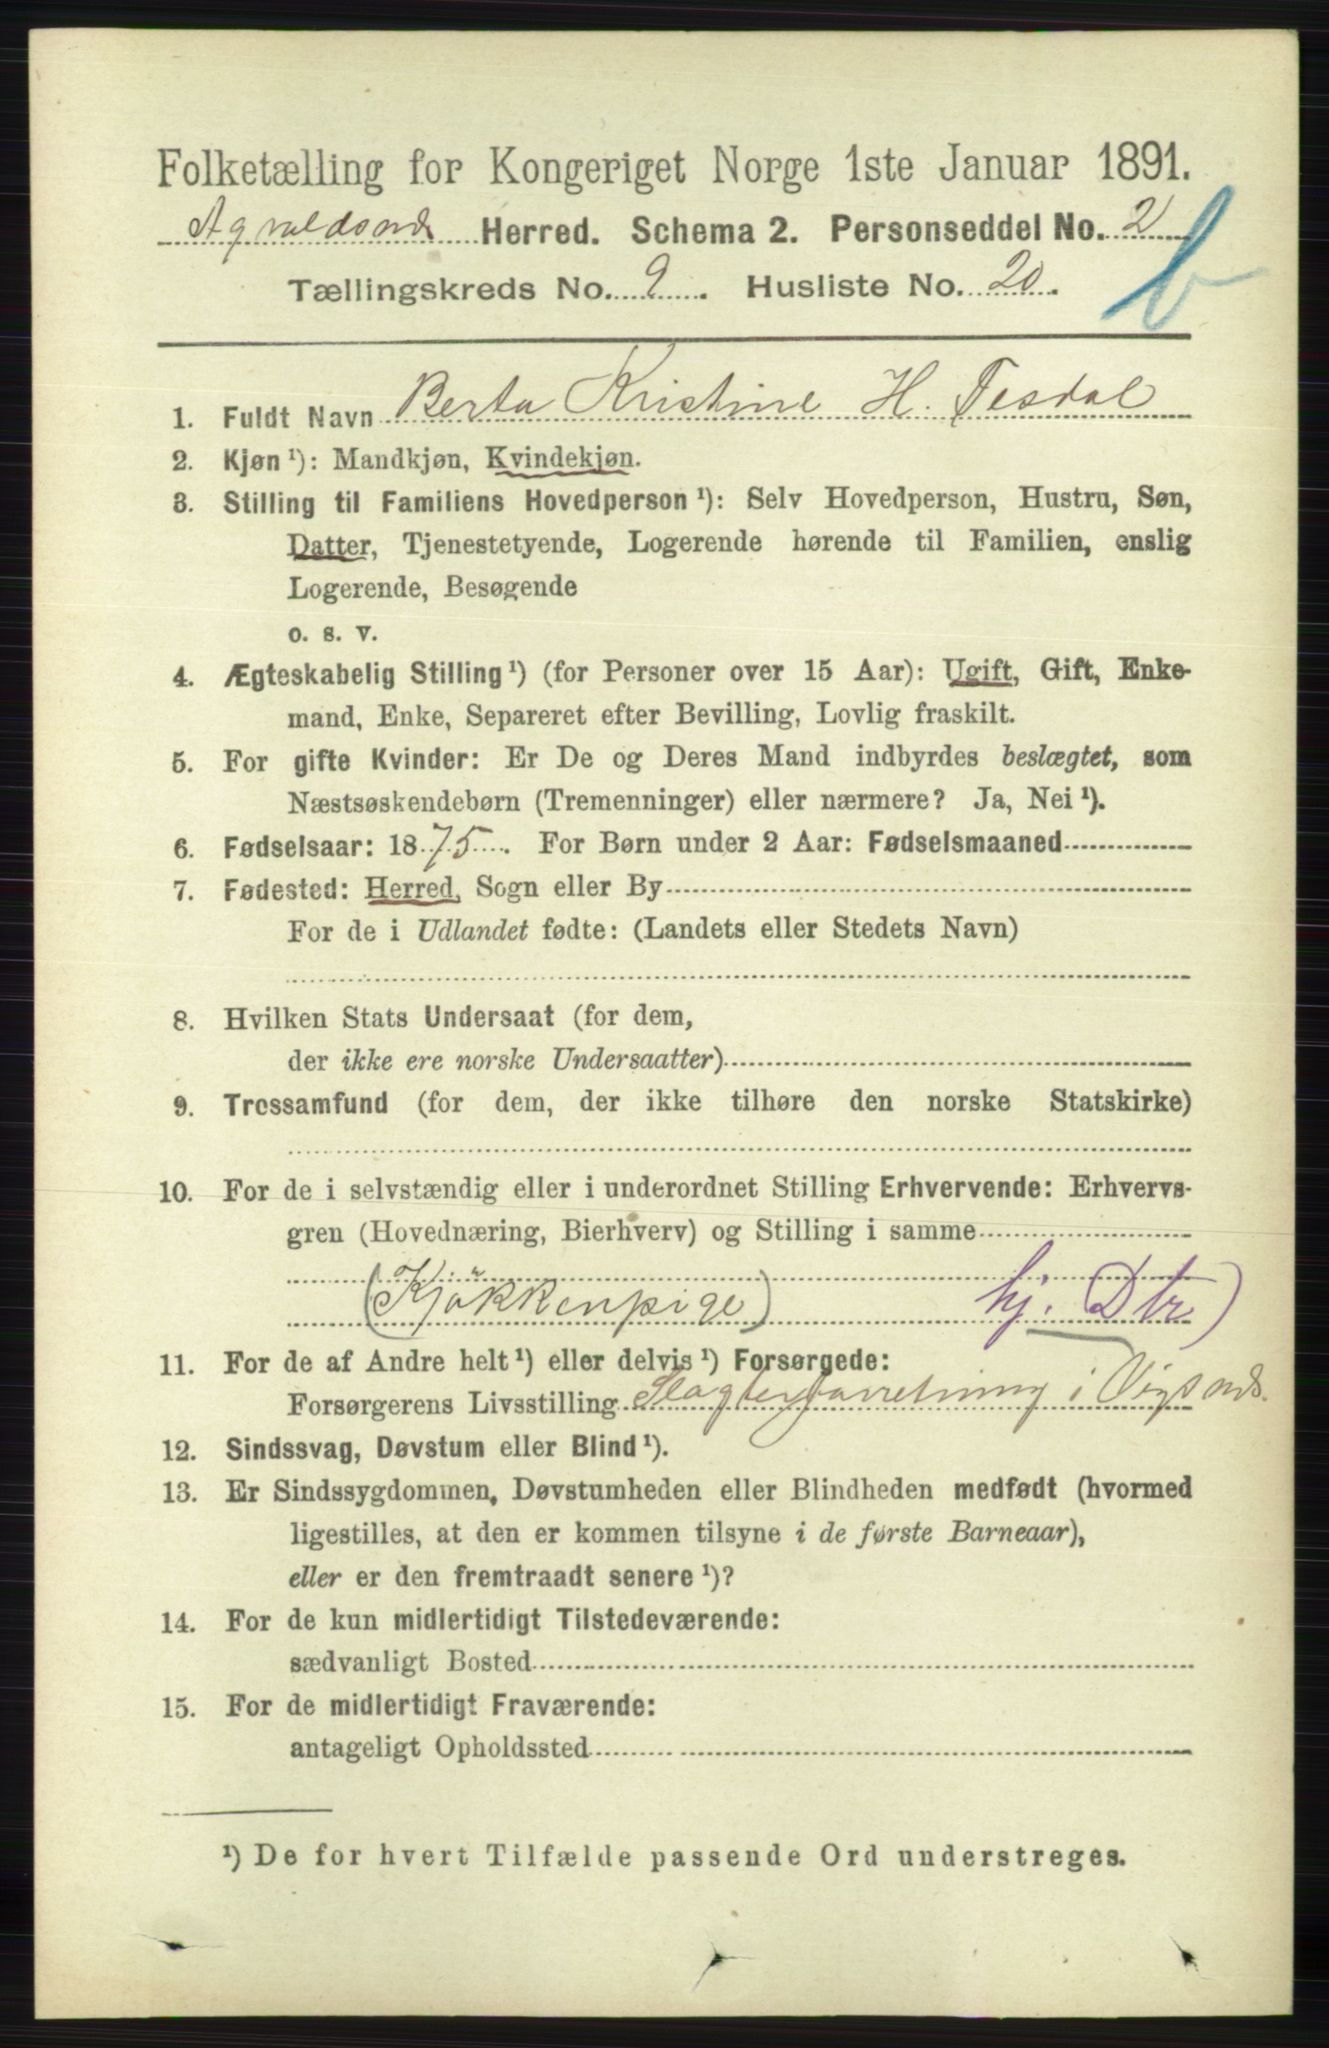 Folketælling for Kongeriget Norge 1ste Januar 1891.
Herred. Schema 2. Personseddel No. 2
Tællingskreds No. 9. Husliste No. 20.
b
1. Fuldt Navn Berta Kristine H. Tesdal
2. Kjøn ¹): Mandkjøn, Kvindekjøn.
3. Stilling til Familiens Hovedperson ¹): Selv Hovedperson, Hustru, Søn,
Datter, Tjenestetyende, Logerende hørende til Familien, enslig
Logerende, Besøgende
o. s. v.
4. Ægteskabelig Stilling ¹) (for Personer over 15 Aar): Ugift, Gift, Enke-
mand, Enke, Separeret efter Bevilling, Lovlig fraskilt.
5. For gifte Kvinder: Er De og Deres Mand indbyrdes beslægtet, som
Næstsøskendebørn (Tremenninger) eller nærmere? Ja, Nei ¹).
6. Fødselsaar: 1875. For Børn under 2 Aar: Fødselsmaaned
7. Fødested: Herred, Sogn eller By
For de i Udlandet fødte: (Landets eller Stedets Navn)
8. Hvilken Stats Undersaat (for dem,
der ikke ere norske Undersaatter)
9. Trossamfund (for dem, der ikke tilhøre den norske Statskirke)
10. For de i selvstændig eller i underordnet Stilling Erhvervende: Erhvervs-
gren (Hovednæring, Bierhverv) og Stilling i samme
(Kjökkenpige) hj. Dtr)
11. For de af Andre helt ¹) eller delvis ¹) Forsørgede:
Forsørgerens Livsstilling Slagterforretning i
12. Sindssvag, Døvstum eller Blind ¹).
13. Er Sindssygdommen, Døvstumheden eller Blindheden medfødt (hvormed
ligestilles, at den er kommen tilsyne i de første Barneaar),
eller er den fremtraadt senere ¹)?
14. For de kun midlertidigt Tilstedeværende:
sædvanligt Bosted
15. For de midlertidigt Fraværende:
antageligt Opholdssted
¹) De for hvert Tilfælde passende Ord understreges.